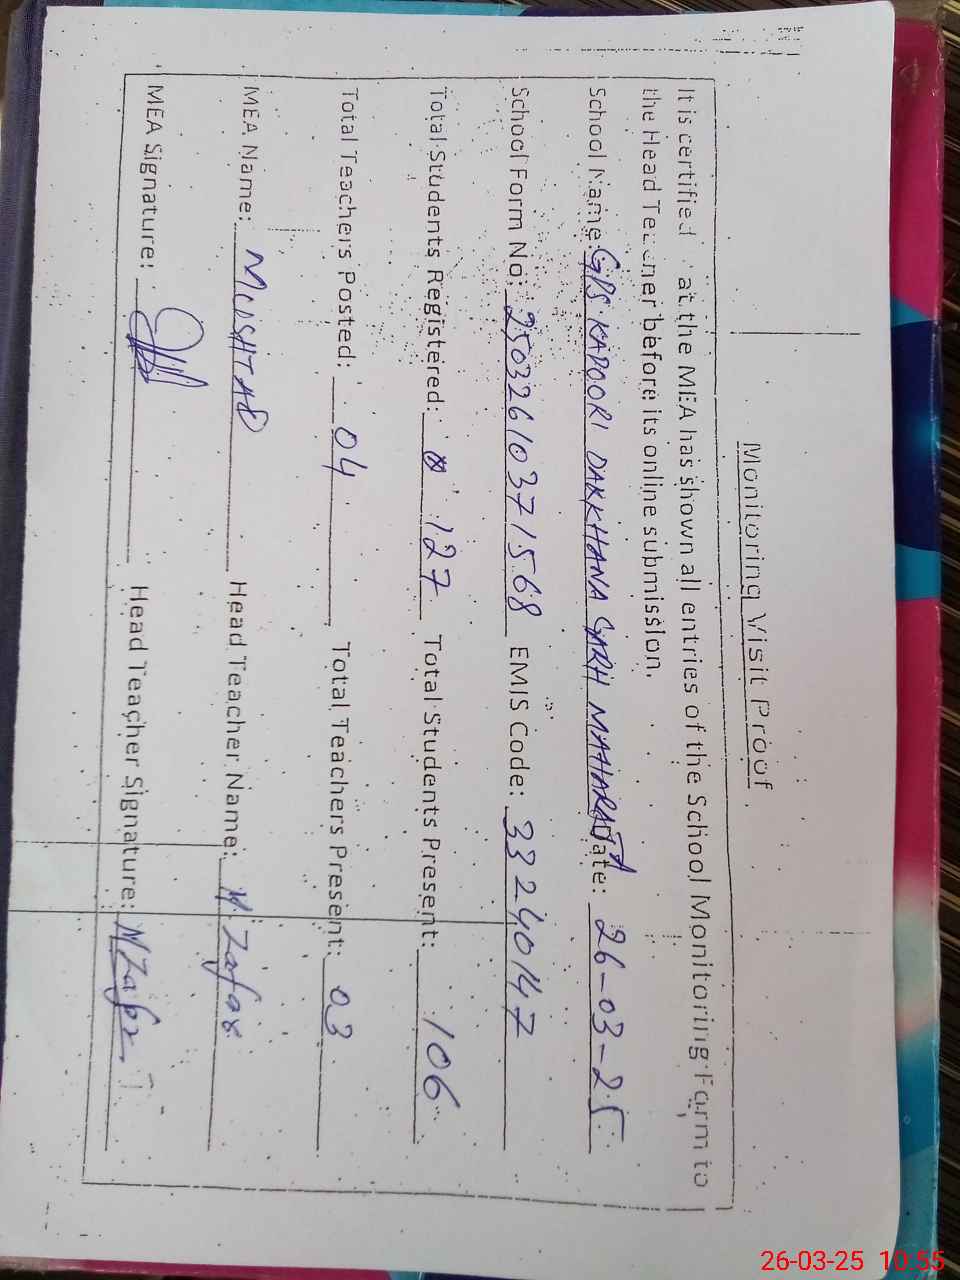 Monitoring Visit Proof
It is certified at the MEA has shown all entries of the School Monitoring Form to
the Head Teacher before its online submission.
School Name: GPS KADOORI DAKKHANA GARH MAHARAJA Date: 26-03-25
School Form No: 25032610371568 EMIS Code: 33240147
Total Students Registered: 127 Total Students Present: 106
Total Teachers Posted: 04 Total Teachers Present: 03
MEA Name: MUSHTAB Head Teacher Name: M. Zafar
MEA Signature: Head Teacher Signature: MZafar
26-03-25 10:55